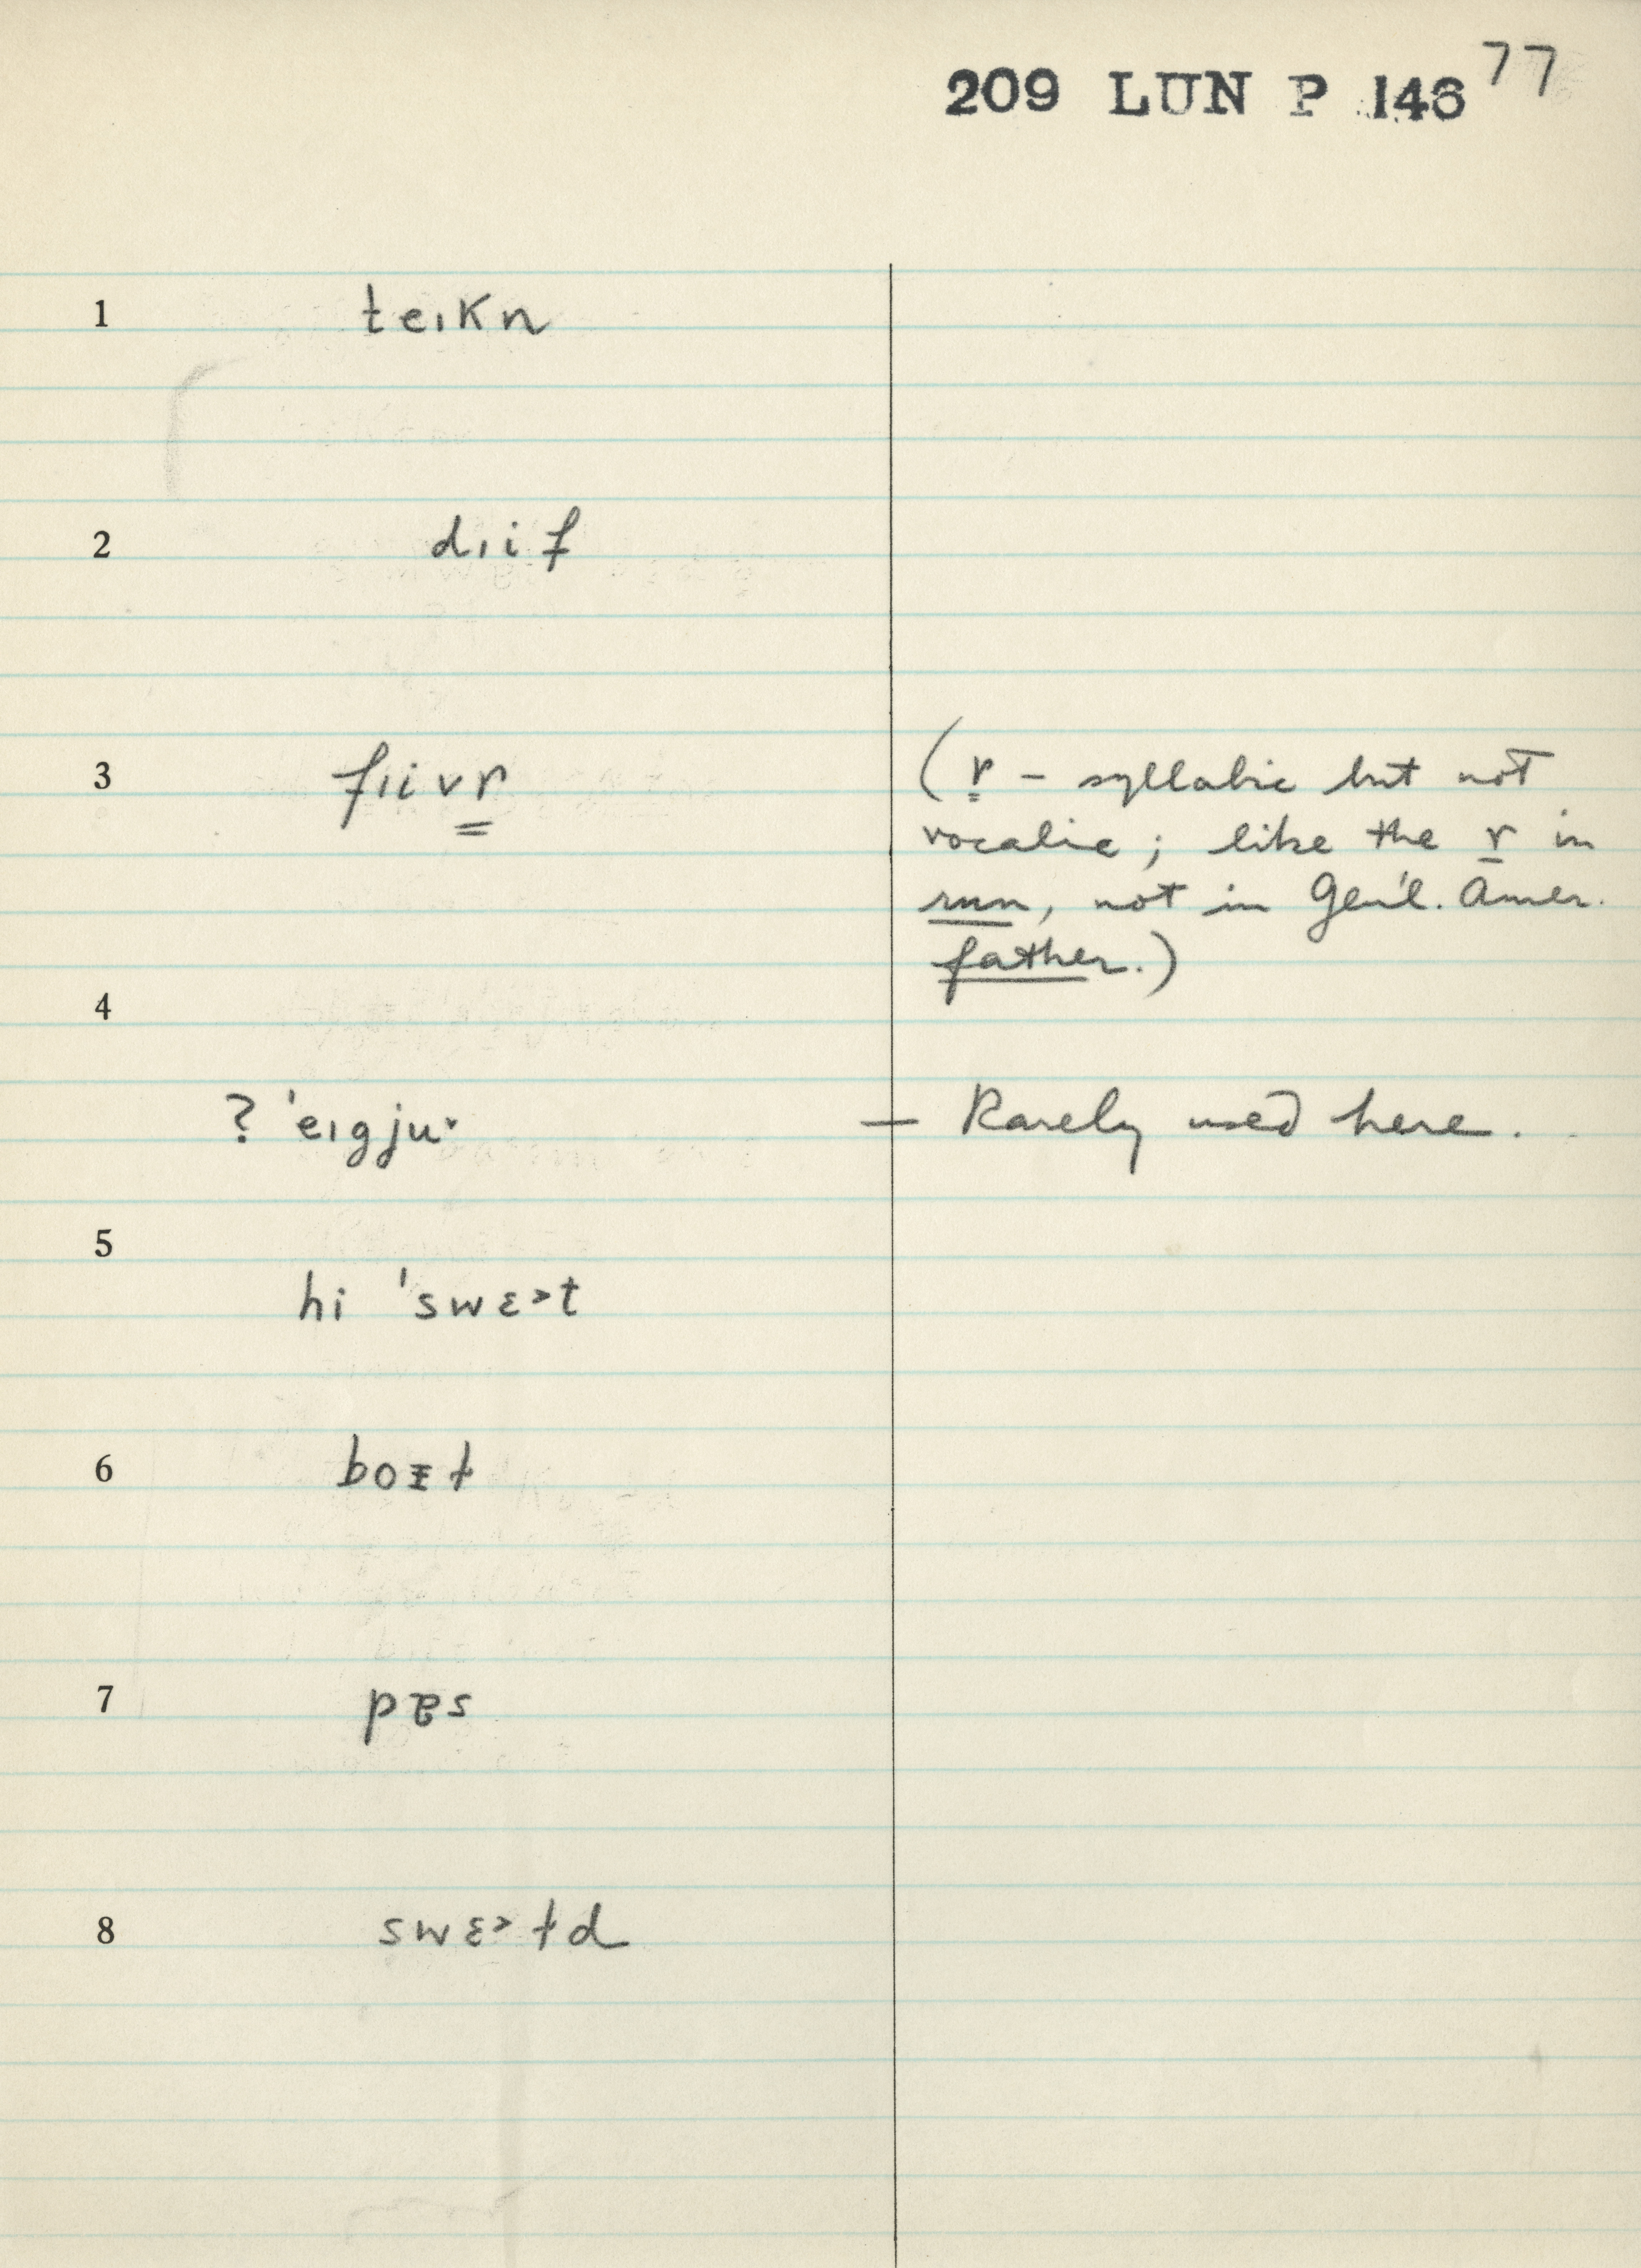 209 LUN P 146 77
1 teıkn
2 dıif
3 fıivr̳ (r̲ – syllabic but not
vocalic; like the r in
run, not in Gen'l. Amer.
father.)
4
? 'eıgjuˑ — Rarely used here.
5
hi 'swɛ˃t
6 boɪ̵ɫ
7 pɐs
8 swɛ˃ɫd